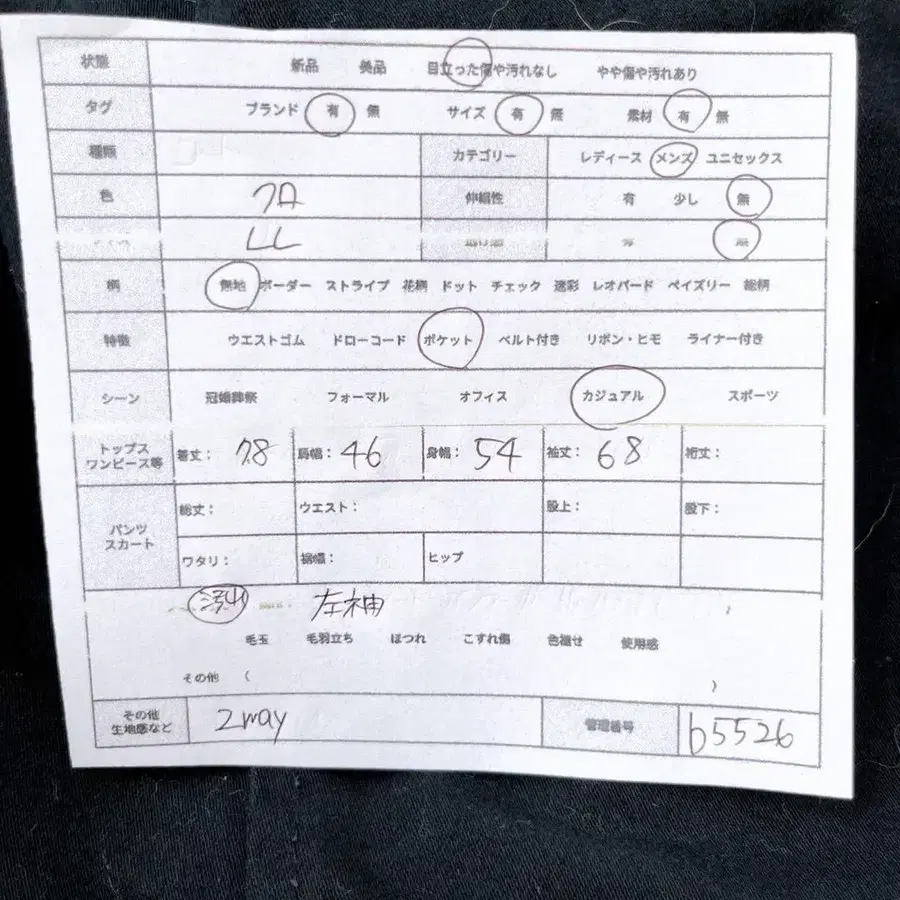 状態 新品 美品 目立った傷や汚れなし やや傷や汚れあり
タグ ブランド 有 無 サイズ 有 無 素材 有 無
種類 カテゴリー レディース メンズ ユニセックス
色 クロ 伸縮性 有 少し 無
LL 無
柄 無地 ボーダー ストライプ 花柄 ドット チェック 迷彩 レオパード ペイズリー 総柄
特徴 ウエストゴム ドローコード ポケット ベルト付き リボン・ヒモ ライナー付き
シーン 冠婚葬祭 フォーマル オフィス カジュアル スポーツ
トップス
ワンピース等
着丈: 78 肩幅: 46 身幅: 54 袖丈: 68 裄丈:
パンツ
スカート
総丈: ウエスト: 股上: 股下:
ワタリ: 裾幅: ヒップ
左袖
毛玉 毛羽立ち ほつれ こすれ傷 色褪せ 使用感
その他 ( )
その他
生地感など
2way 管理番号 b5526